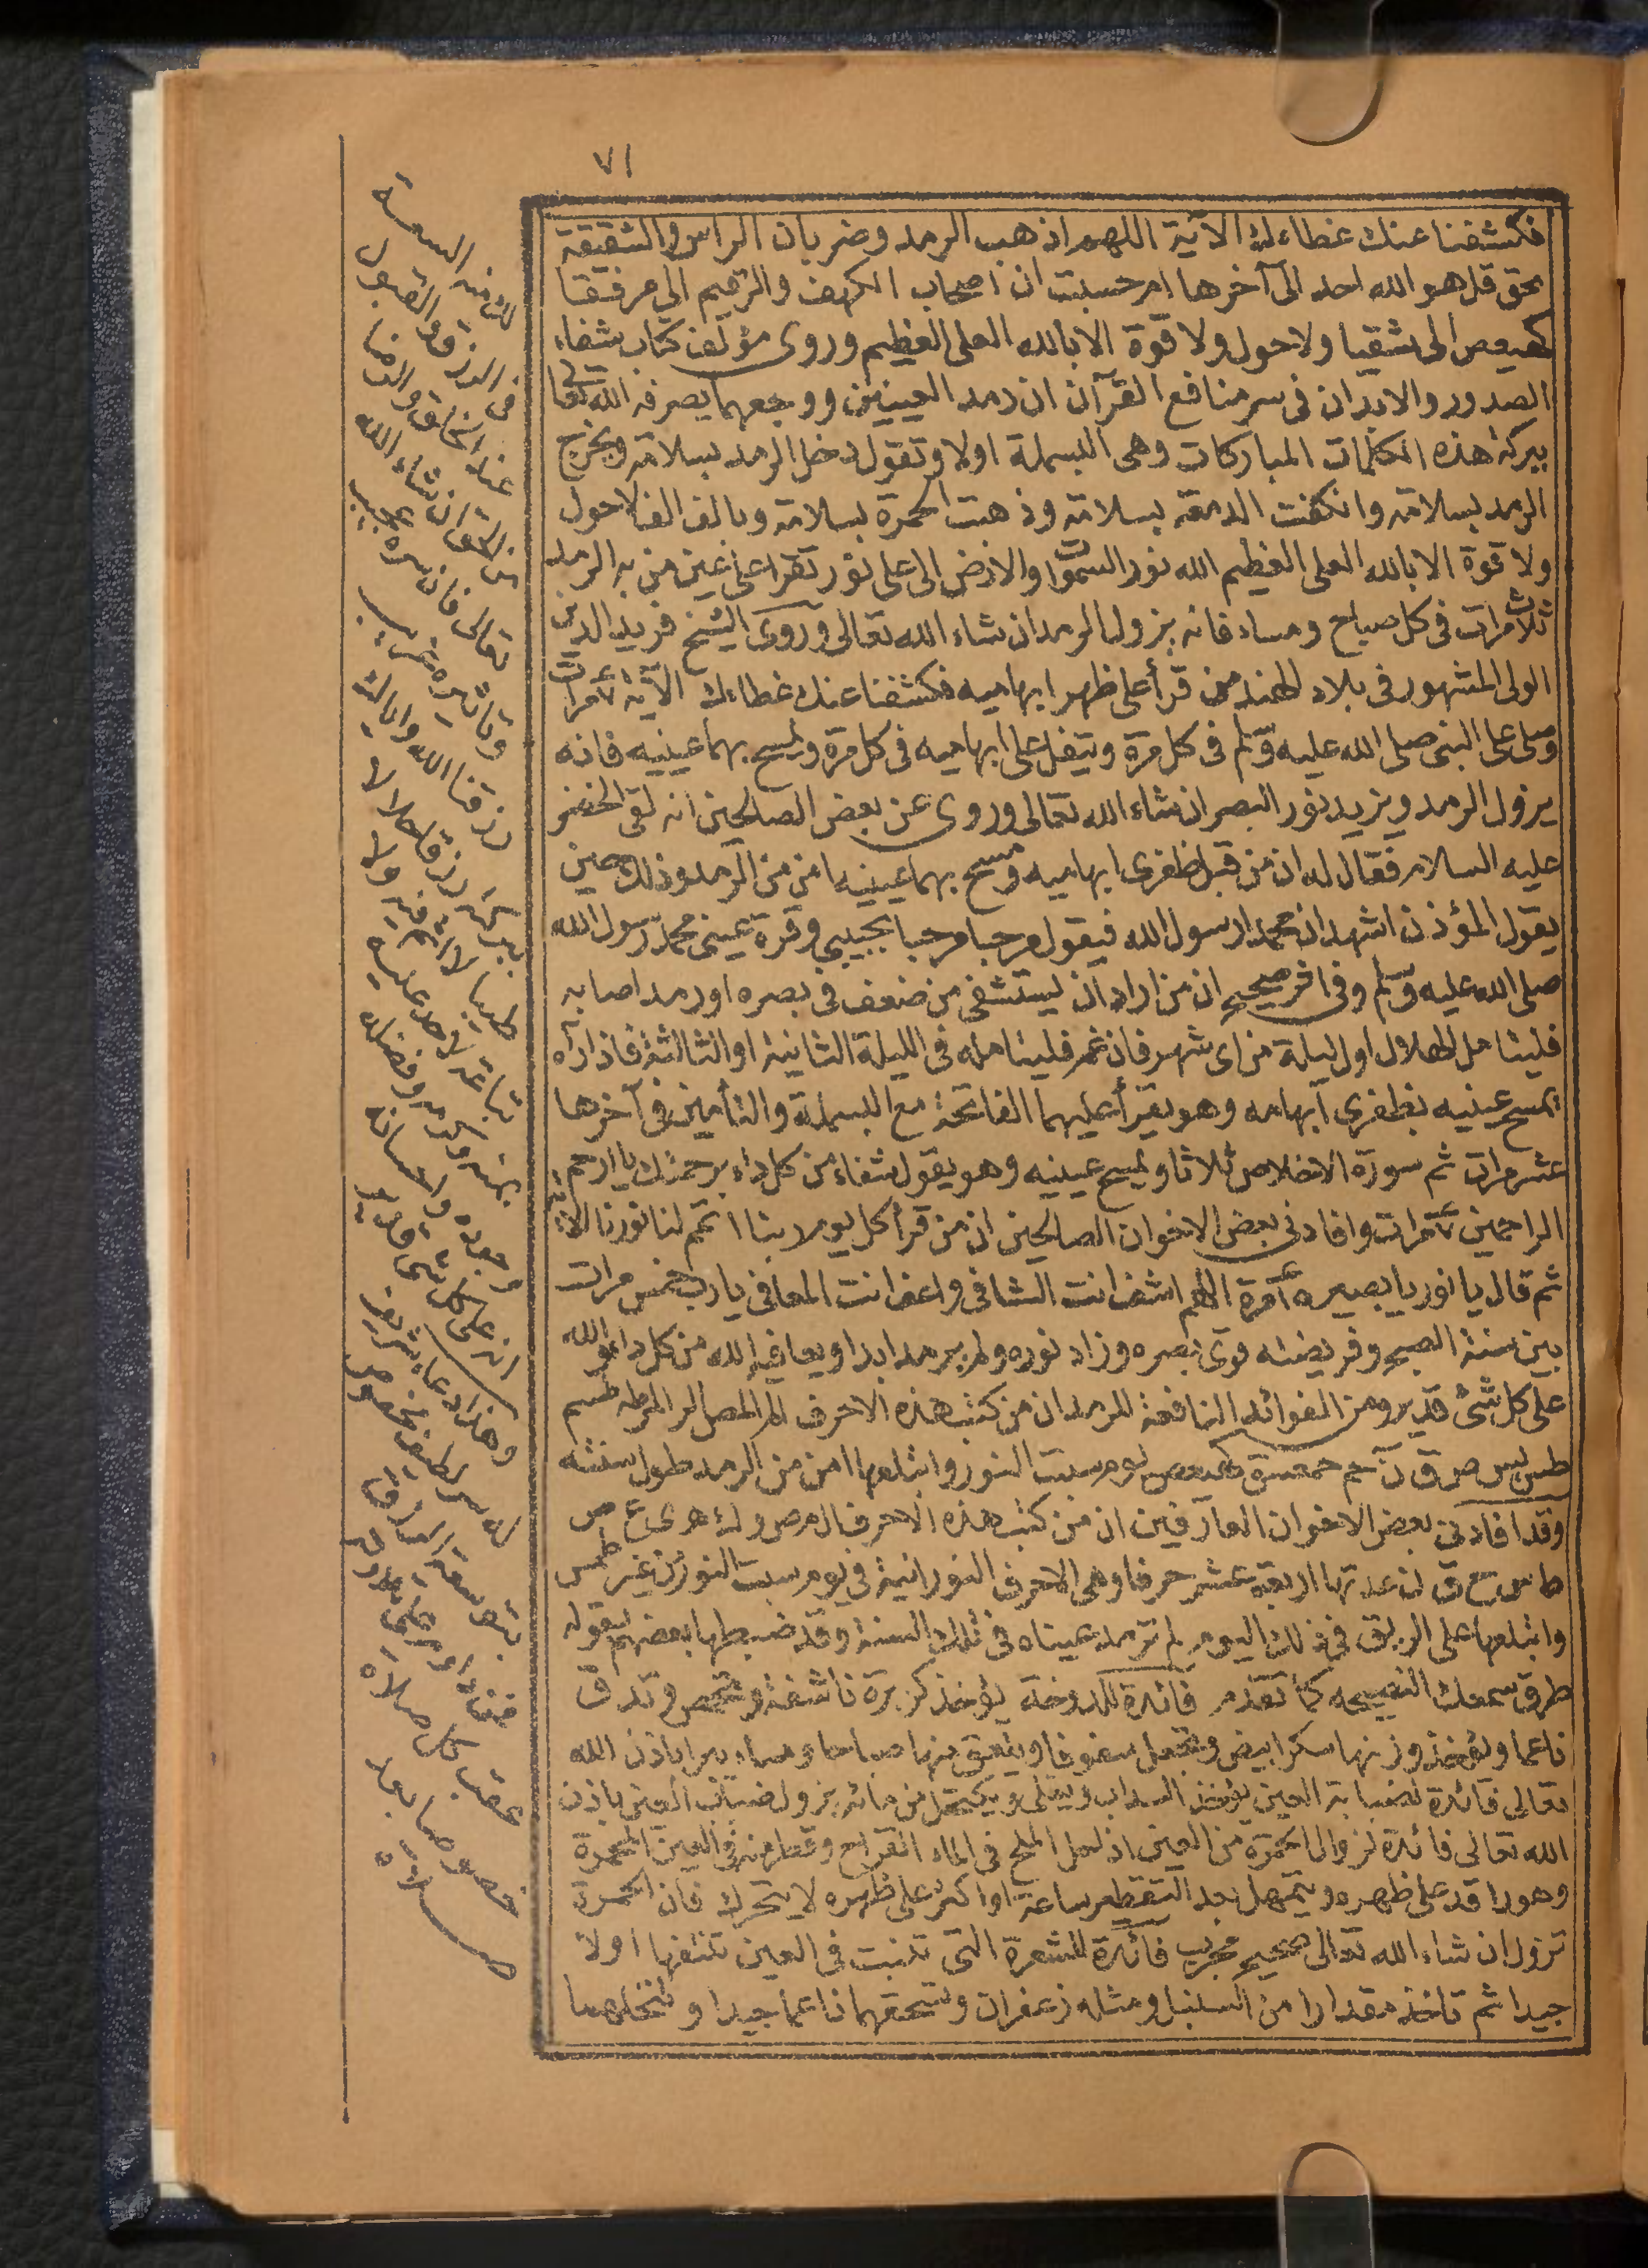 ٧١
فكشفنا عنك غطاءك الآية اللهم اذهب الرمد وضربان الراس والشقيقة
بحق قل هو الله احد الى آخرها ام حسبت ان اصحاب الكهف والرقيم الى مرفقا
كهيعص الى شقيا ولا حول ولا قوة الا بالله العلى العظيم وروى مؤلف كتاب شفاء
الصدور والابدان فى سر منافع القرآن ان رمد العينين ووجعهما يصرفه الله تعالى
ببركة هذه الكلمات المباركات وهى البسملة اولا وتقول دخل الرمد بسلامة ويخرج
الرمد بسلامة وانكفت الدمعة بسلامة وذهبت الحمرة بسلامة وبالف الف لاحول
ولا قوة الا بالله العلى العظيم الله نور السموات والارض الى على نور تقرا على عين من به الرمد
ثلاث مرات فى كل صباح ومساء فانه يزول الرمد ان شاء الله تعالى وروى الشيخ فريد الدين
الولى المشهور فى بلاد الهند من قرأ على ظهر ابهاميه فكشفنا عنك غطاءك الآية ٧ مرات
وصلى على النبى صلى الله عليه وسلم فى كل مرة ويتفل على ابهاميه فى كل مرة ويمسح بهما عينيه فانه
يزول الرمد ويزيد نور البصر ان شاء الله تعالى وروى عن بعض الصالحين انه لقى الخضر
عليه السلام فقال له ان من قبل ظفرى ابهاميه ومسح بهما عينيه امن من الرمد وذلك حين
يقول المؤذن اشهد ان محمدا رسول الله فيقول مرحبا مرحبا بحبيبي وقرة عينى محمد رسول الله
صلى الله عليه وسلم وفى اثر صحيح ان من اراد ان يستشفى من ضعف فى بصره او رمد اصابه
فليتامل الهلال اول ليلة من اى شهر فان غم فليتامله فى الليلة الثانية او الثالثة فاذا رآه
يمسح عينيه بظفرى ابهامه وهو يقرأ عليهما الفاتحة مع البسملة والتأمين فى آخرها
عشر مرات ثم سورة الاخلاص ثلاثا ويمسح عينيه وهو يقول شفاء من كل داء برحمتك يا ارحم
الراحمين ٧ مرات وافادنى بعض الاخوان الصالحين ان من قرأ كل يوم ربنا اتمم لنا نورنا الآية
ثم قال يا نور يا بصير ٧ مرة اللهم اشف انت الشافى واعف انت المعافى يا رب خمس مرات
بين سنة الصبح وفريضته قوى بصره وزاد نوره ولم يرمد ابدا ويعافيه الله من كل داء والله
على كل شئ قدير ومن الفوائد النافعة للرمد ان من كتب هذه الاحرف الم المص الر المر طه طسم
طس يس ص ق ن حم حمعسق كهيعص يوم سبت النور وابتلعها امن من الرمد طول سنته
وقد افادنى بعض الاخوان العارفين ان من كتب هذه الاحرف ا ل م ص ر ك هـ ى ع ص
ط س ح ق ن عدتها اربعة عشر حرفا وهى الاحرف النورانية فى يوم سبت النور من غير طمس
وابتلعها على الريق فى ذلك اليوم لم ترمد عيناه فى تلك السنة وقد ضبطها بعضهم بقوله
طرق سمعك النصيحه كما تقدم فائدة للدوخة يؤخذ كزبرة ناشفة وتحمص وتدق
ناعما ويؤخذ وزنها سكرا ابيض ويجعل سفوفا ويلعق منها صباحا ومساء يبرا باذن الله
تعالى فائدة لضبابة العين يؤخذ السداب ويغلى ويكتحل من مائه يزول ضباب العين باذن
الله تعالى فائدة لزوال الحمرة من العين اذا حل الملح فى الماء القراح وقطر منه فى العين المحمرة
وهو راقد على ظهره ويتمهل بعد التقطير ساعة او اكثر على ظهره لا يتحرك فان الحمرة
تزول ان شاء الله تعالى صحيح مجرب فائدة للشعرة التى تنبت فى العين تنتفها اولا
جيدا ثم تاخذ مقدارا من السنبل ومثله زعفران وتسحقهما ناعما جيدا وتنخلهما
السعة
فى الرزق والقبول
عند الخلائق والرضا
من الحق ان شاء الله
تعالى فان سره عجيب
وتاثيره غريب
رزقنا الله واياك
ببركته رزقا حلالا
طيبا لا اثم فيه ولا
تباعة لاحد عليه
بمنه وكرمه وفضله
وجوده واحسانه
انه على كل شئ قدير
وهذا دعاء شريف
له سر لطيف مخصوص
بتوسعة الارزاق
عقب كل صلاة
خصوصا بعد
صلاة